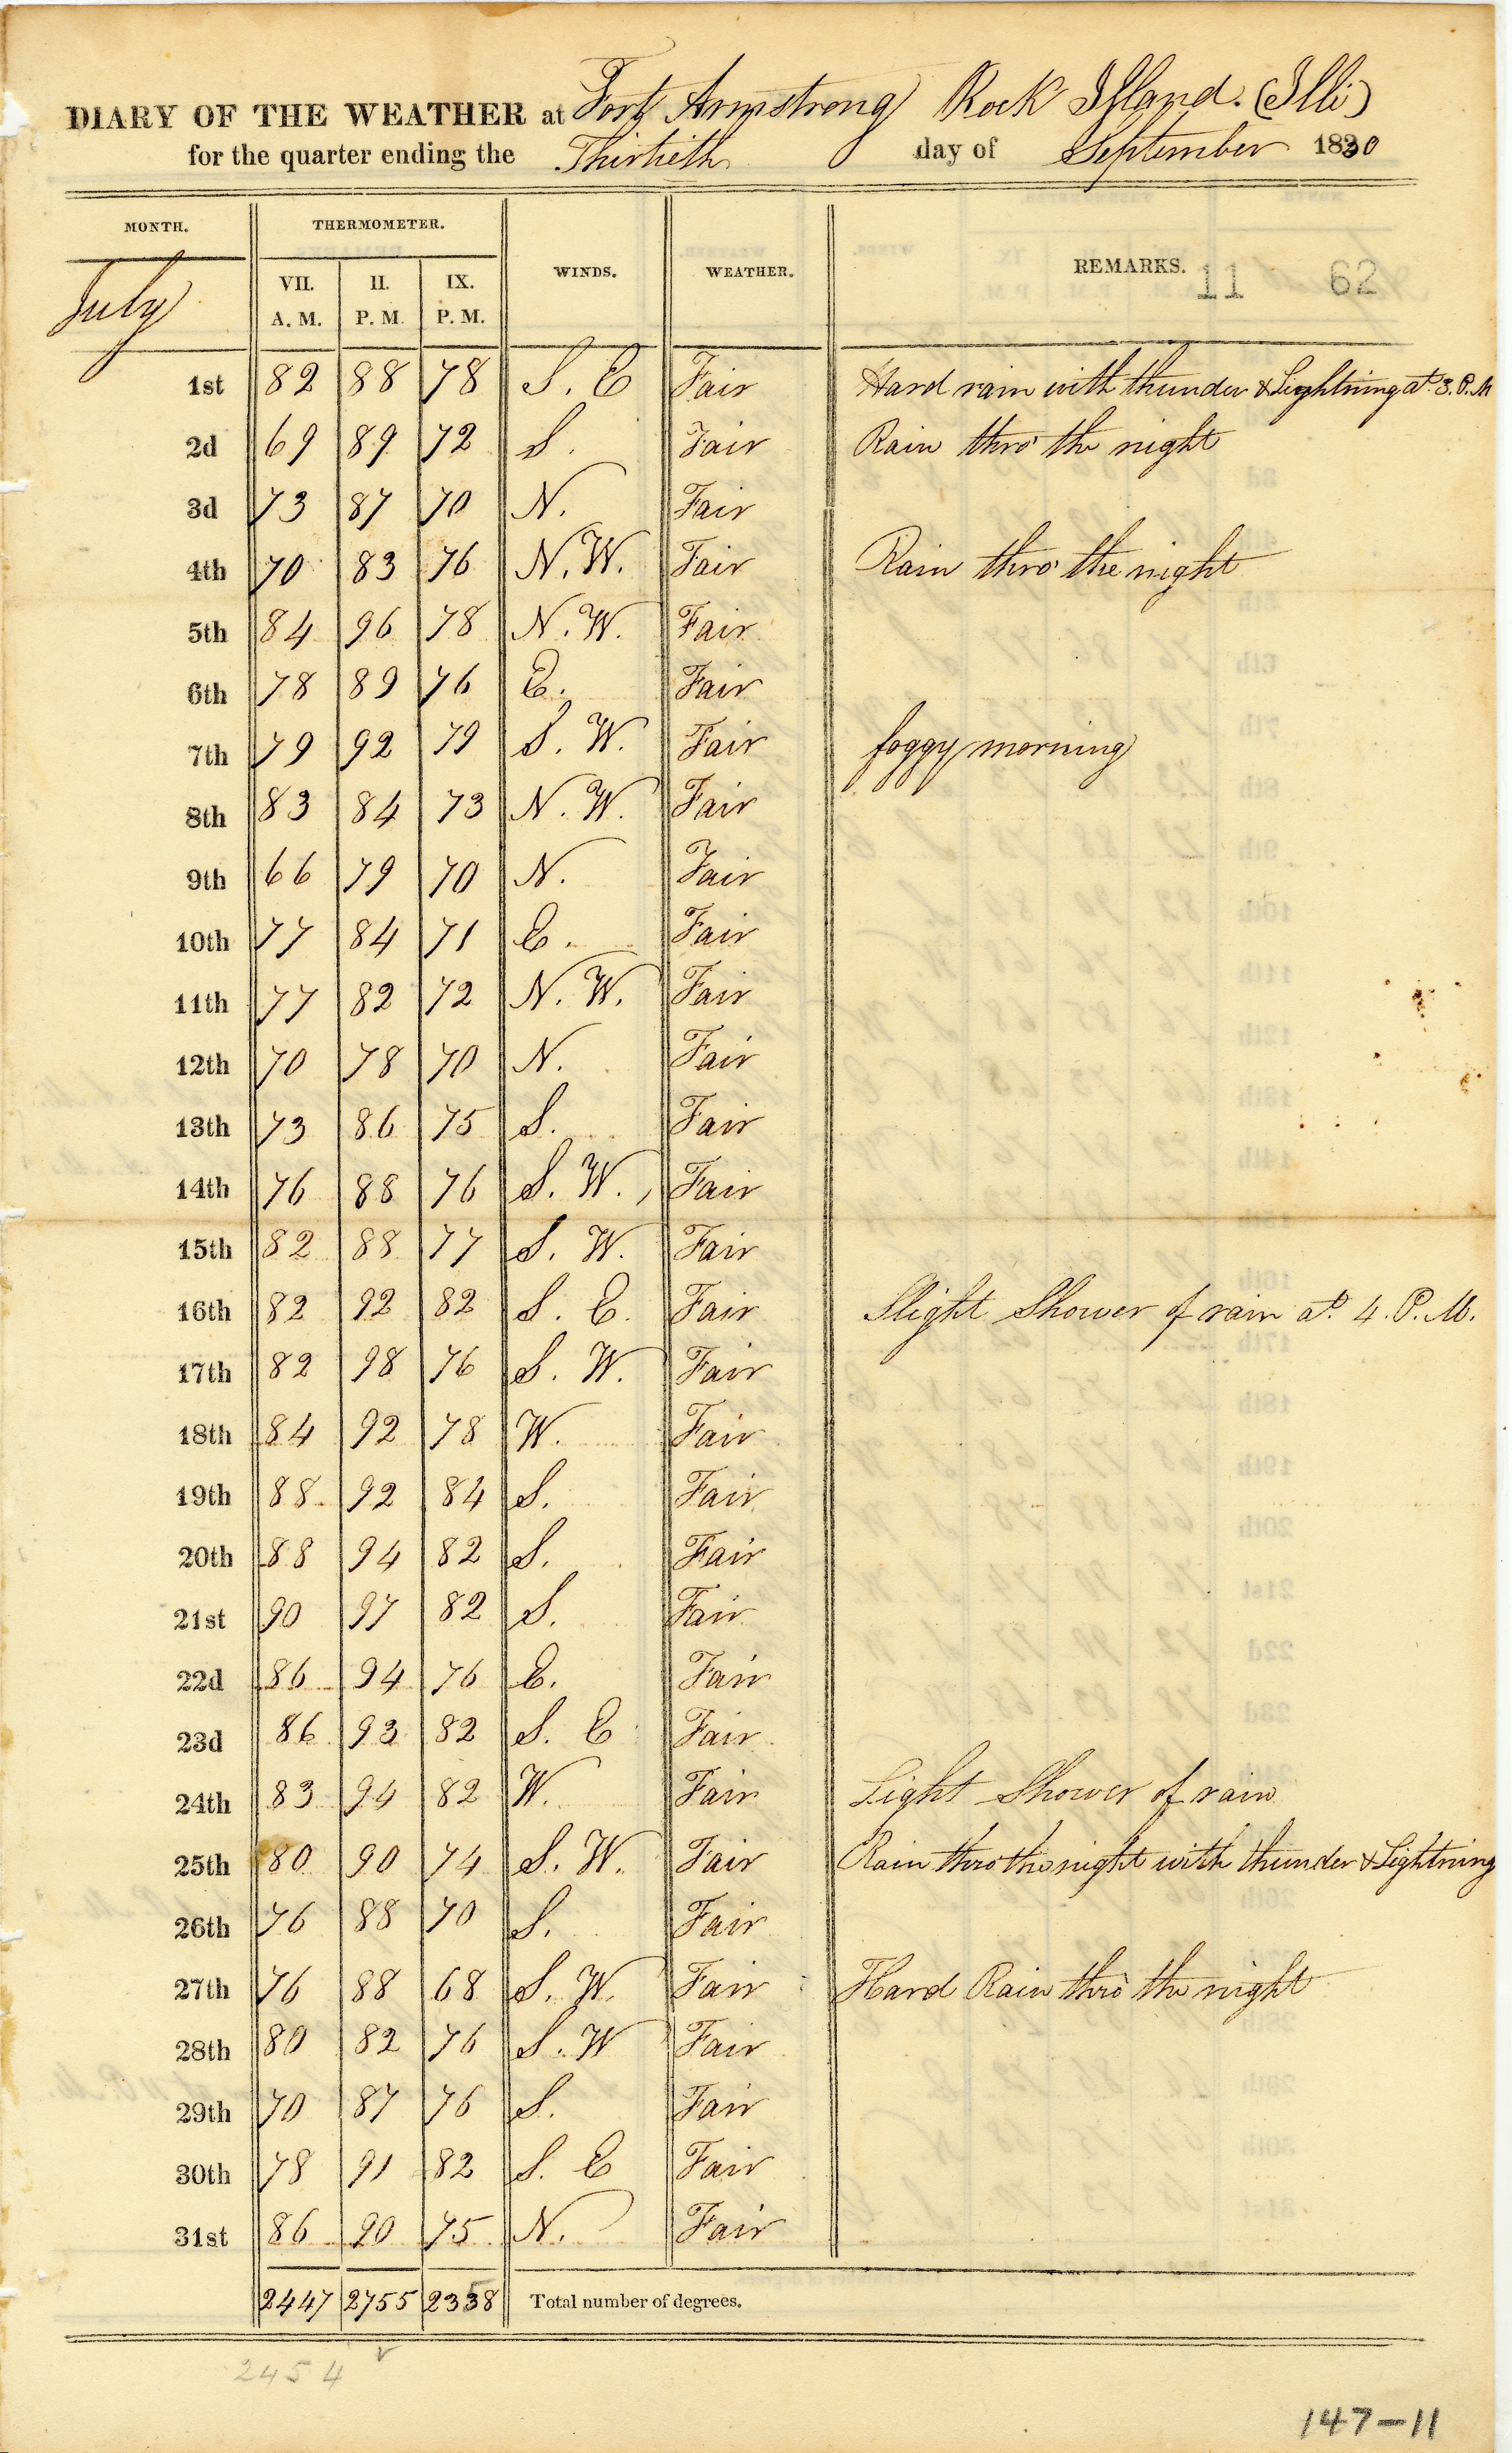 DIARY OF THE WEATHER at Fort Armstrong Rock Island. (Illi)
for the quarter ending the Thirtieth day of September 1830
MONTH. THERMOMETER. WINDS. WEATHER. REMARKS. 11 62
July VII. A. M. II. P. M. IX. P. M.
1st 82 88 78 S. E Fair Hard rain with thunder & Lightning at 3. P. M
2d 69 89 72 S. Fair Rain thro' the night
3d 73 87 70 N. Fair
4th 70 83 76 N. W. Fair Rain thro' the night
5th 84 96 78 N. W. Fair
6th 78 89 76 E. Fair
7th 79 92 79 S. W. Fair foggy morning
8th 83 84 73 N. W. Fair
9th 66 79 70 N. Fair
10th 77 84 71 E. Fair
11th 77 82 72 N. W. Fair
12th 70 78 70 N. Fair
13th 73 86 75 S. Fair
14th 76 88 76 S. W. Fair
15th 82 88 77 S. W. Fair
16th 82 92 82 S. E. Fair Slight Shower of rain at 4. P. M.
17th 82 98 76 S. W. Fair
18th 84 92 78 W. Fair
19th 88 92 84 S. Fair
20th 88 94 82 S. Fair
21st 90 97 82 S. Fair
22d 86 94 76 E. Fair
23d 86 93 82 S. E Fair
24th 83 94 82 W. Fair Light Shower of rain
25th 80 90 74 S. W. Fair Rain thro the night with thunder & Lightning
26th 76 88 70 S. Fair
27th 76 88 68 S. W. Fair Hard Rain thro' the night
28th 80 82 76 S. W Fair
29th 70 87 76 S. Fair
30th 78 91 82 S. E Fair
31st 86 90 75 N. Fair
2447 2755 2358 Total number of degrees.
2454
147-11